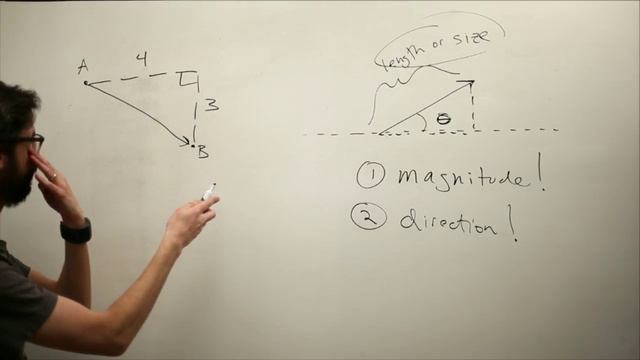 A
4
3
B
length or size
θ
① magnitude!
② direction!